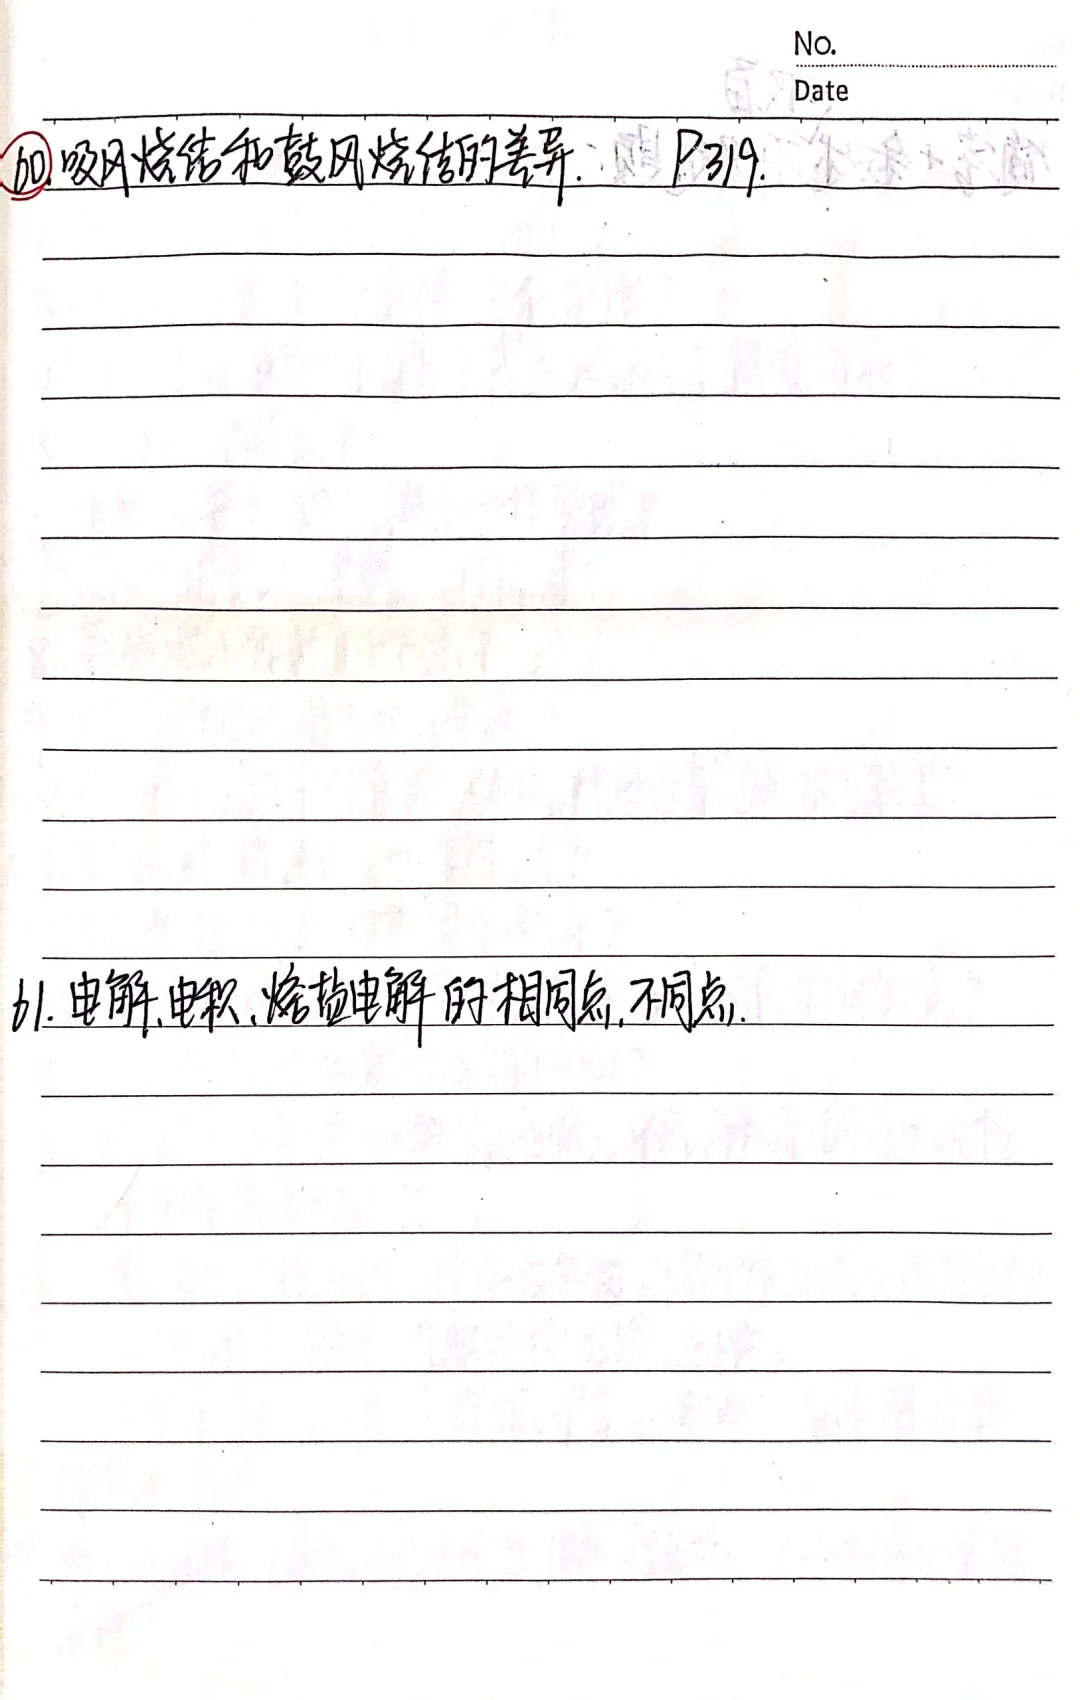 No.
Date
60. 吸风烧结和鼓风烧结的差异. P319.
61. 电解、电积、熔盐电解的相同点、不同点.